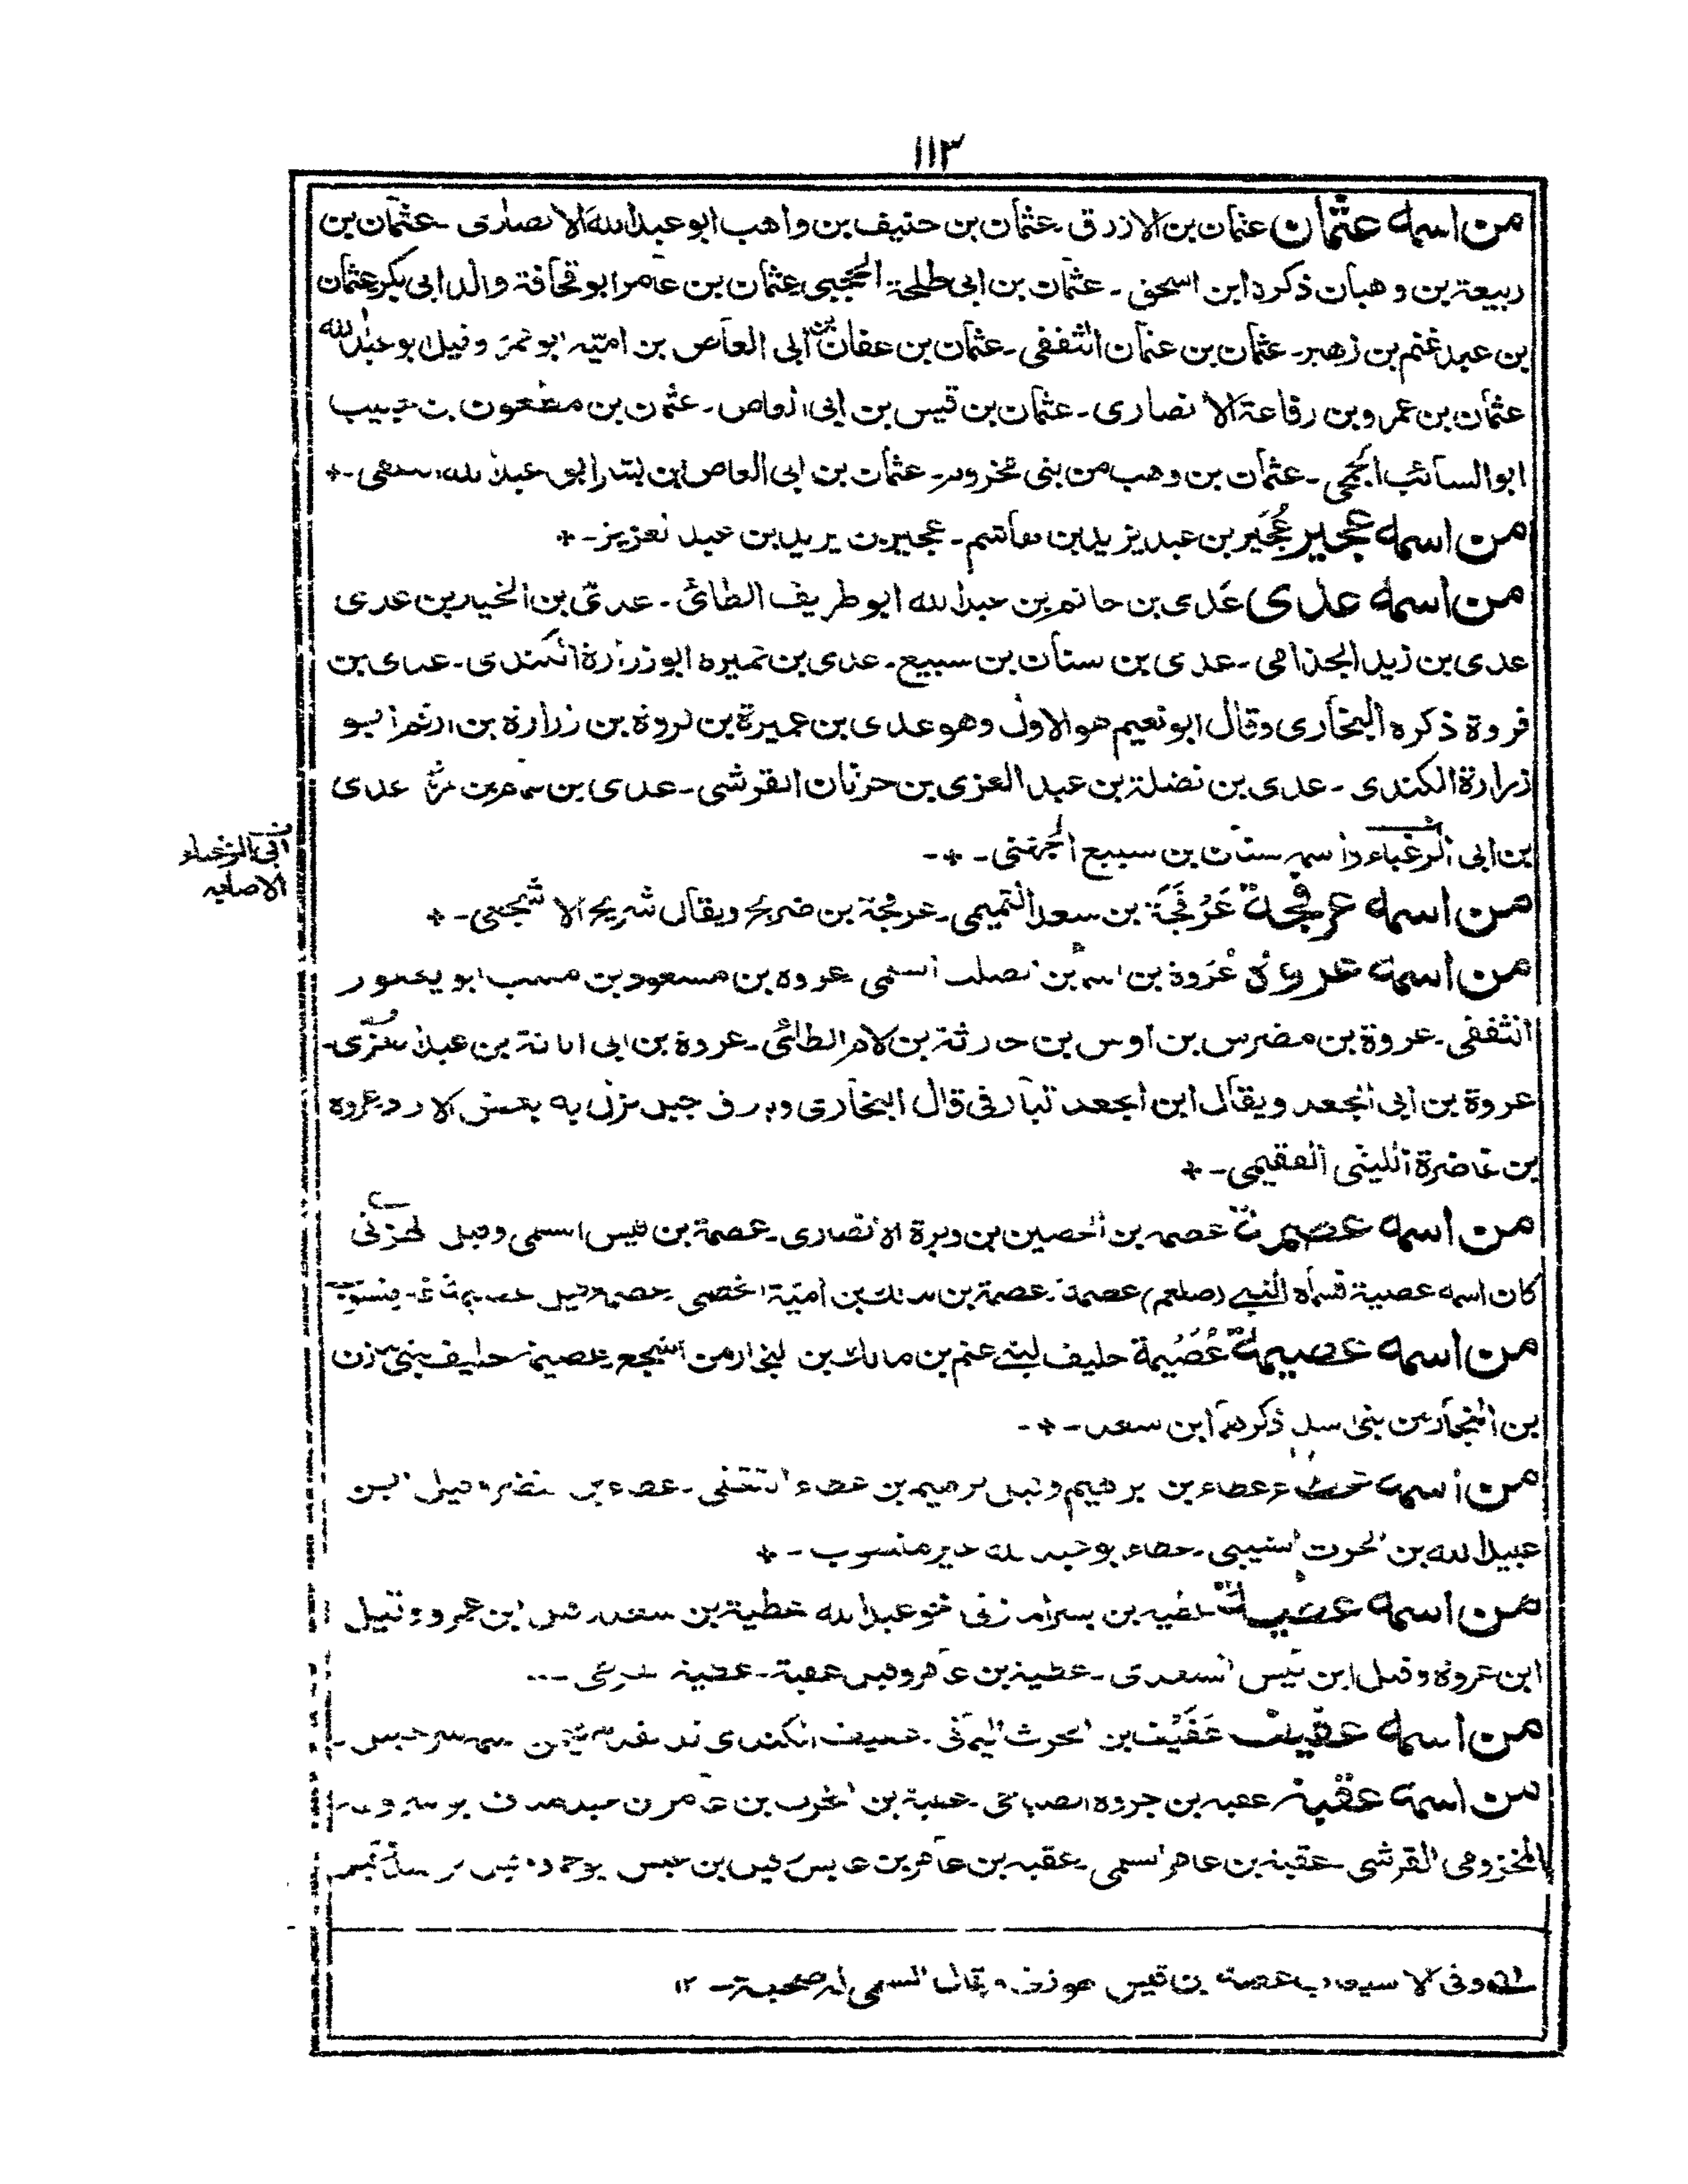 ١١٣
من اسمه عثمان عثمان بن الازرق ـ عثمان بن حنيف بن واهب ابو عبد الله الانصارى ـ عثمان بن
ربيعة بن وهبان ذكره ابن اسحق ـ عثمان بن ابى طلحة الحجبى عثمان بن عامر ابو قحافة والد ابى بكر عثمان
بن عبد غنم بن زهير ـ عثمان بن عثمان الثقفى ـ عثمان بن عفان بن ابى العاص بن امية ابو عمر وقيل ابو عبد الله
عثمان بن عمرو بن رفاعة الانصارى ـ عثمان بن قيس بن ابى العاص ـ عثمان بن مظعون بن حبيب
ابو السائب الجمحى ـ عثمان بن وهب من بنى مخزوم ـ عثمان بن ابى العاص بن بشر ابو عبد الله الثقفى ـ+
من اسمه عجير عُجَير بن عبد يزيد بن هاشم ـ عجير بن يزيد بن عبد العزيز ـ+
من اسمه عدى عَدى بن حاتم بن عبد الله ابو طريف الطائى ـ عدى بن الخيار بن عدى
عدى بن زيد الجذامى ـ عدى بن سنان بن سبيع ـ عدى بن عميرة ابو زرارة الكندى ـ عدى بن
فروة ذكره البخارى وقال ابو نعيم هو الاول وهو عدى بن عميرة بن فروة بن زرارة بن ارقم ابو
زرارة الكندى ـ عدى بن نضلة بن عبد العزى بن حرثان القرشى ـ عدى بن عدى
بن ابى الزغباء واسمه سنان بن سبيع الجهنى ـ+ـ
فى ابى الزغباء
الاصابه
من اسمه عرفجة عَرْفَجَة بن سعد التميمى ـ عرفجة بن ضريح ويقال شريح الاشجعى ـ+
من اسمه عروة عُرْوة بن اسماء بن الصلت السلمى عروه بن مسعود بن معتب ابو يعفور
الثقفى ـ عروة بن مضرس بن اوس بن حارثة بن لام الطائى ـ عروة بن ابى اثاثة بن عبد العزى ـ
عروة بن ابى الجعد ويقال ابن الجعد البارقى قال البخارى وبارق جبل نزل به بعض الازد عروه
بن غاضرة الليثى الفقيمى ـ+
من اسمه عصمة عصمه بن الحصين بن وبرة الانصارى ـ عصمة بن قيس السلمى وقيل الهوزنى
كان اسمه عصية فسماه النبى (صلعم) عصمة ـ عصمة بن مالك بن امية الخطمى ـ عصمه وقيل عصيمة غير منسوب
من اسمه عصيمة عُصَيْمة حليف لبنى غنم بن مالك بن النجار من اشجع ـ عصيمة حليف بنى مازن
بن النجار من بنى اسد ذكرهما ابن سعد ـ+ـ
من اسمه عطاء عطاء بن ابراهيم وقيل ابراهيم بن عطاء الثقفى ـ عطاء بن النضر وقيل ابن
عبيد الله بن الحرث الشيبى ـ عطاء ابو عبد الله غير منسوب ـ+
من اسمه عطية عطيه بن بسر المازنى اخو عبد الله عطية بن سعد قيل ابن عمرو وقيل
ابن عروة وقيل ابن قيس السعدى ـ عطية بن عامر وقيل عقبة ـ عطية القرشى ـ..
من اسمه عفيف عَفَيْف بن الحرث اليمانى ـ عفيف الكندى
من اسمه عقبة عقبه بن جروه ـ عقبة بن الحرث بن عامر بن
المخزومى القرشى ـ عقبة بن عامر السلمى ـ عقبه بن عامر بن عابس بن عبس
وفى الاستيعاب عصمة بن قيس هوزنى ويقال السلمى له صحبة ـ ١٢